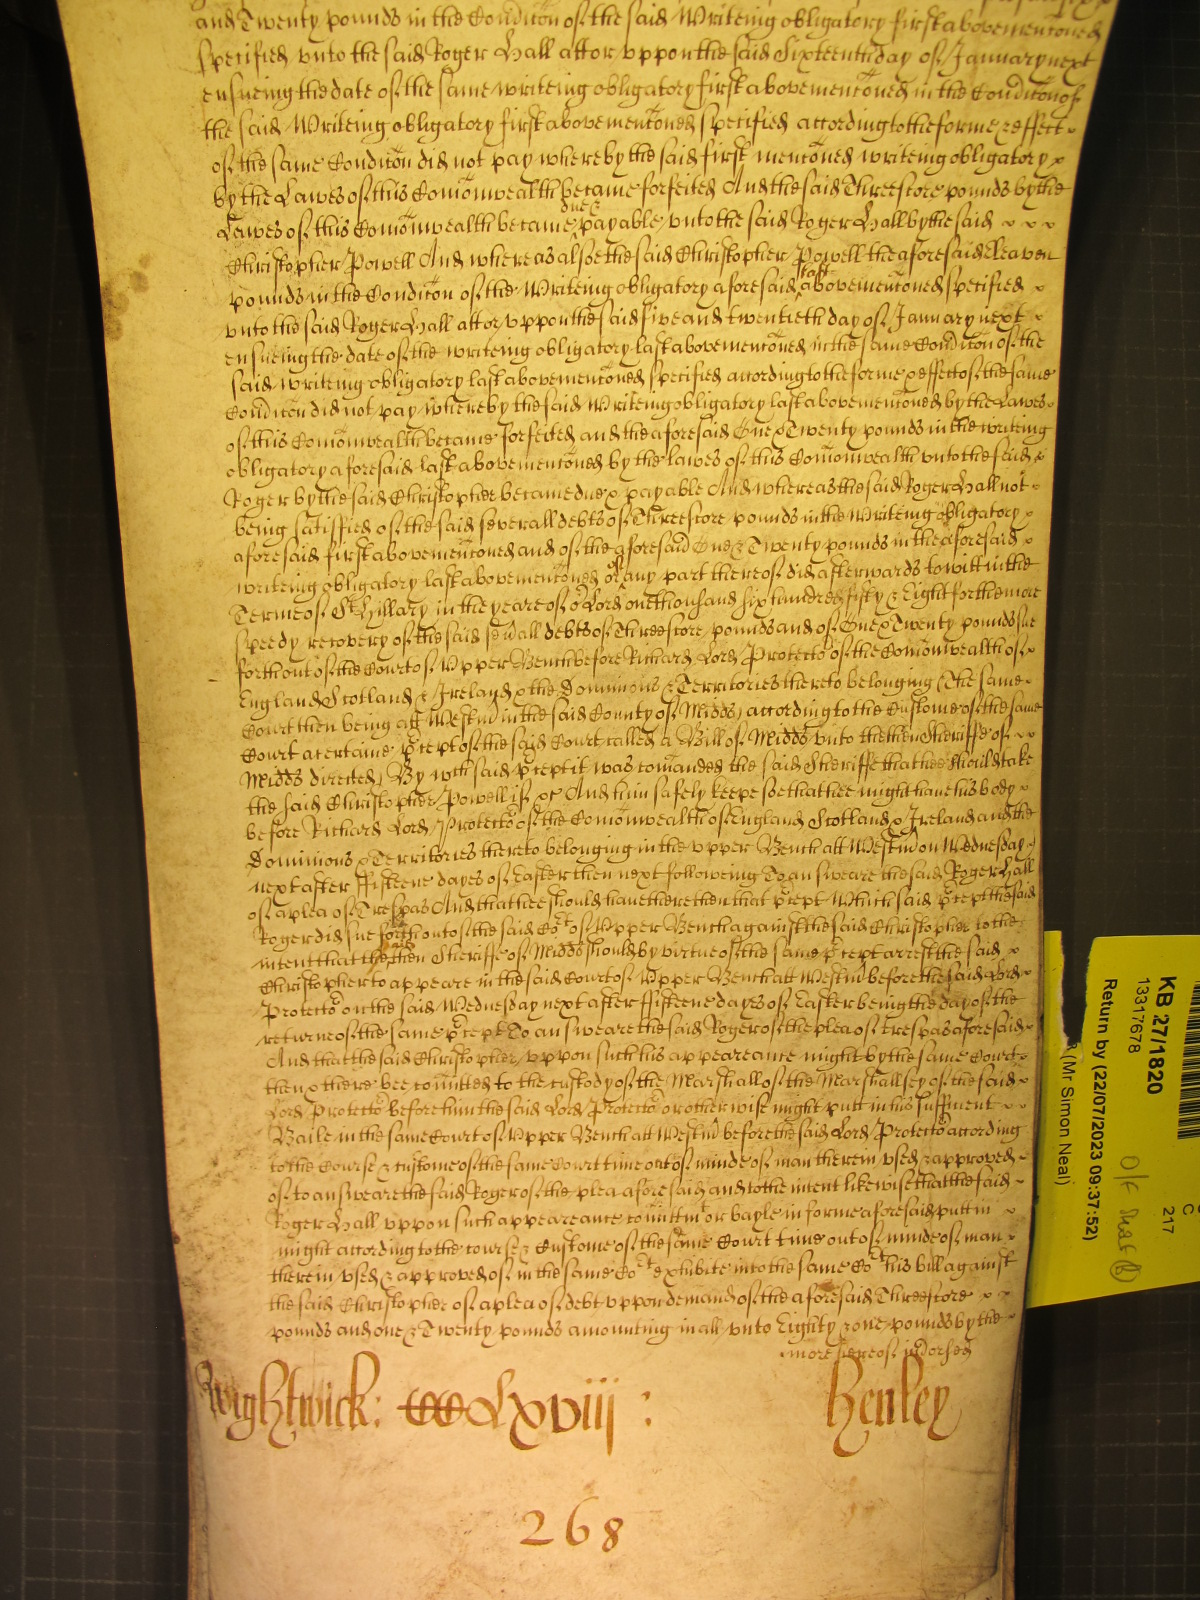 and Twenty pounds in the Condicōn of the said Writeing obligatory first abovemencōned
specified unto the said Roger Hall att or uppon the said Sixteenth day of January next
ensueing the date of the same writeing obligatory first abovemencōned in the Condicōn of
the said Writeing obligatory first abovemencōned specified according to the forme & effect
of the same Condicōn did not pay whereby the said first mencōned writeing obligatory
by the Lawes of this Comōnwealth became forfeited And the said Threescore pounds by the
Lawes of this Comōnwealth became due & payable unto the said Roger Hall by the said
Christopher Powell And whereas alsoe the said Christopher Powell the aforesaid Eleaven
pounds in the Condicōn of the Writeing obligatory aforesaid last abovemencōned specified
unto the said Roger Hall att or uppon the said five and twentieth day of January next
ensueing the date of the writeing obligatory last abovemencōned in the same Condicōn of the
said writeing obligatory last abovemencōned specified according to the forme & effect of the same
Condicōn did not pay whereby the said Writeing obligatory last abovemencōned by the Lawes
of this Comōnwealth became forfeited and the aforesaid One & Twenty pounds in the writing
obligatory aforesaid last abovemencōned by the lawes of this Comōnwealth unto the said
Roger by the said Christopher became due & payable And whereas the said Roger Hall not
being satisfied of the said severall debts of Threescore pounds in the Writeing obligatory
aforesaid first abovemencōned and of the aforesaid One & Twenty pounds in the aforesaid
writeing obligatory last abovemencōned or any part thereof did afterwards to witt in the
Terme of St Hillary in the yeare of or Lord one thousand six hundred fifty & Eight for the more
speedy recovery of the said sevall debts of Threescore pounds and of One & Twenty pounds sue
forth out of the Court of Upper Bench before Richard Lord Protector of the Comōnwealth of
England Scotland & Ireland & the Dominions & Territories thereto belonging (The same
Court then being att Westm̄ in the said County of Midds) according to the Custome of the same
Court a certaine p̄cept of the said Court called a Bill of Midds unto the then Sheriffe of
Midds directed, By wch said p̄cept it was comanded the said Sheriffe that hee should take
the said Christopher Powell if &c And him safely keepe soe that hee might have his body
before Richard Lord Protector of the Comōnwealth of England Scotland & Ireland and the
Dominions & Territories thereto belonging in the upper Bench att Westm̄ on Wednesday
next after ffifteene dayes of Easter then next following To answeare the said Roger Hall
of a plea of Trespas And that hee should have there then that p̄cept Which said p̄cept the said
Roger did sue forth out of the said Cort of Upper Bench against the said Christopher to the
intent that the then Sheriffe of Midds should by virtue of the same p̄cept arrest the said
Christopher to appeare in the said Court of Upper Bench att Westm̄ before the said Lord
Protector on the said Wednesday next after ffifteene dayes of Easter being the day of the
returne of the same p̄cept To answeare the said Roger of the plea of trespas aforesaid
And that the said Christopher uppon such his appeareance might by the same Court
then & there bee comitted to the custody of the Marshall of the Marshallsey of the said
Lord Protector before him the said Lord Protector or otherwise might putt in his suffient
Baile in the same Court of Upper Bench att Westm̄ before the said Lord Protector according
to the Course & custome of the same Court time out of minde of man therein used & approved
of to answeare the said Roger of the plea aforesaid and to the intent likewise that the said
Roger Hall uppon such appeareance comittmt or bayle in forme aforesaid putt in
might according to the course & Custome of the same Court time out of minde of man
therein used & approved of in the same Cort exhibite into the same Cort his bill against
the said Christopher of a plea of debt uppon demand of the aforesaid Threescore
pounds and one & Twenty pounds amounting in all unto Eighty & one pounds by the
more hereof indorsed
Wightwick: Lxviij : Henley
268
KB 27/1820
13317678
Return by (22/07/2023 09:37:52)
(Mr Simon Neal)
C
217